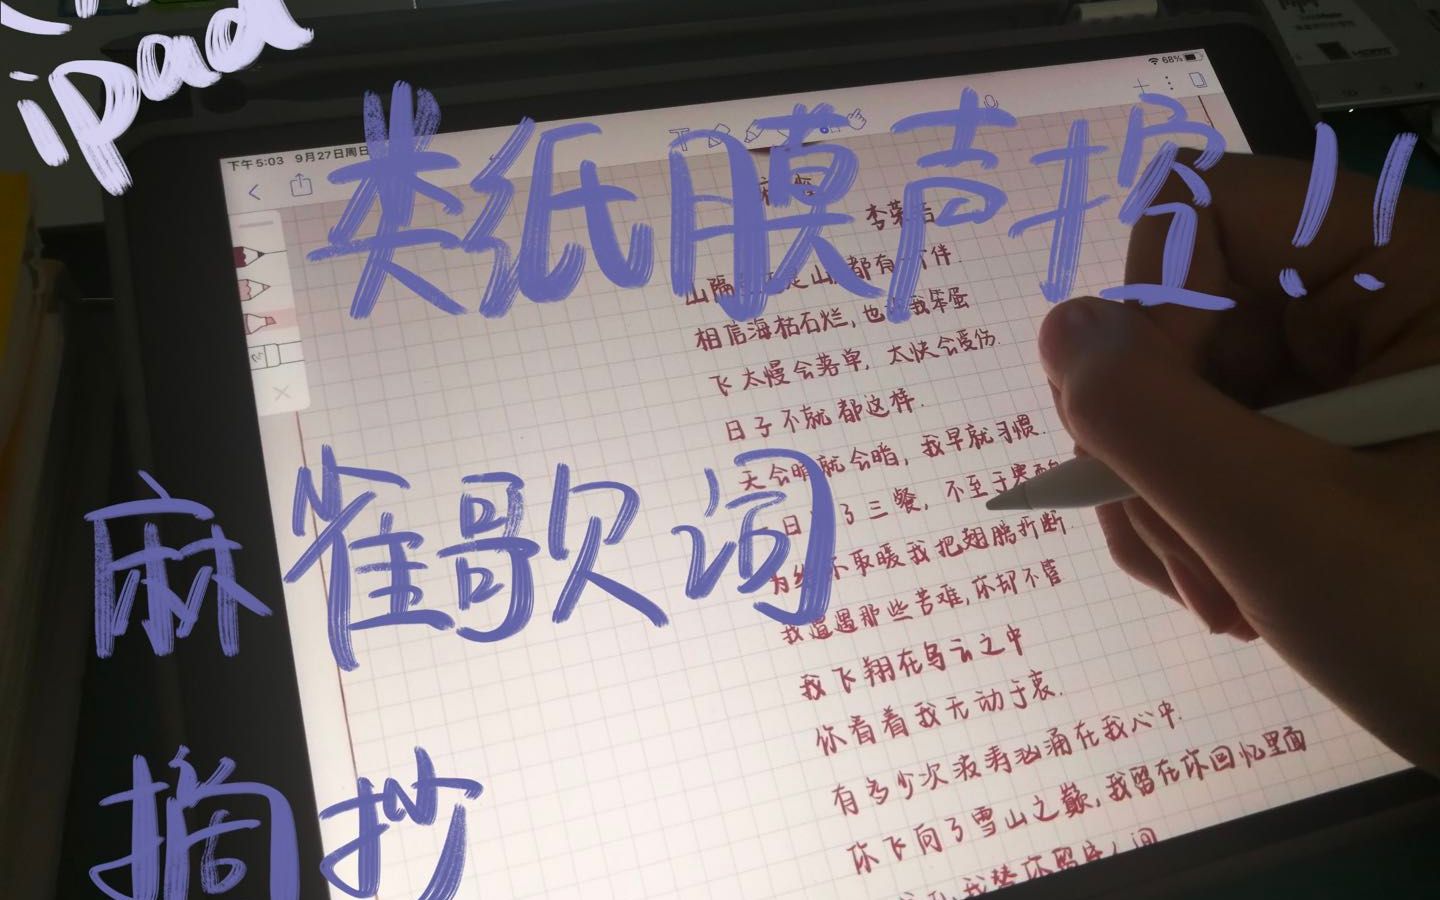 iPad
68%
下午5:03 9月27日周日
类纸膜声控!!
李荣
山隔 是山 都有 伴
相信海枯石烂,也 我笨蛋
飞太慢会落单,太快会受伤.
日子不就都这样.
天会晴就会暗,我早就习惯.
日 了三餐,不至于寒
麻雀歌词
取暖我把翅膀折断
我遭遇那些苦难,你却不管
我飞翔在乌云之中
你看着我无动于衷.
有多少次波涛汹涌在我心中.
你飞向了雪山之巅,我留在你回忆里面
我替你
摘抄